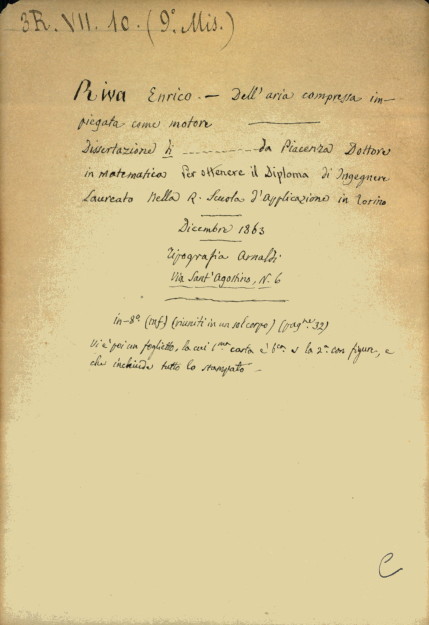 3R. VII. 10. (9.° Mis.)
Riva Enrico. — Dell'aria compressa im-
piegata come motore
Dissertazione di da Piacenza Dottore
in matematica per ottenere il Diploma di Ingegnere
Laureato nella R. Scuola d'Applicazione in Torino
Dicembre 1863
Tipografia Arnaldi
Via Sant'Agostino, N. 6
in-8° (inf.) (riuniti in un sol corpo) (pag.ne 32)
Vi è poi un foglietto, la cui 1.ma carta è b.ca e la 2.a con figure, e
che inchiude tutto lo stampato -
C